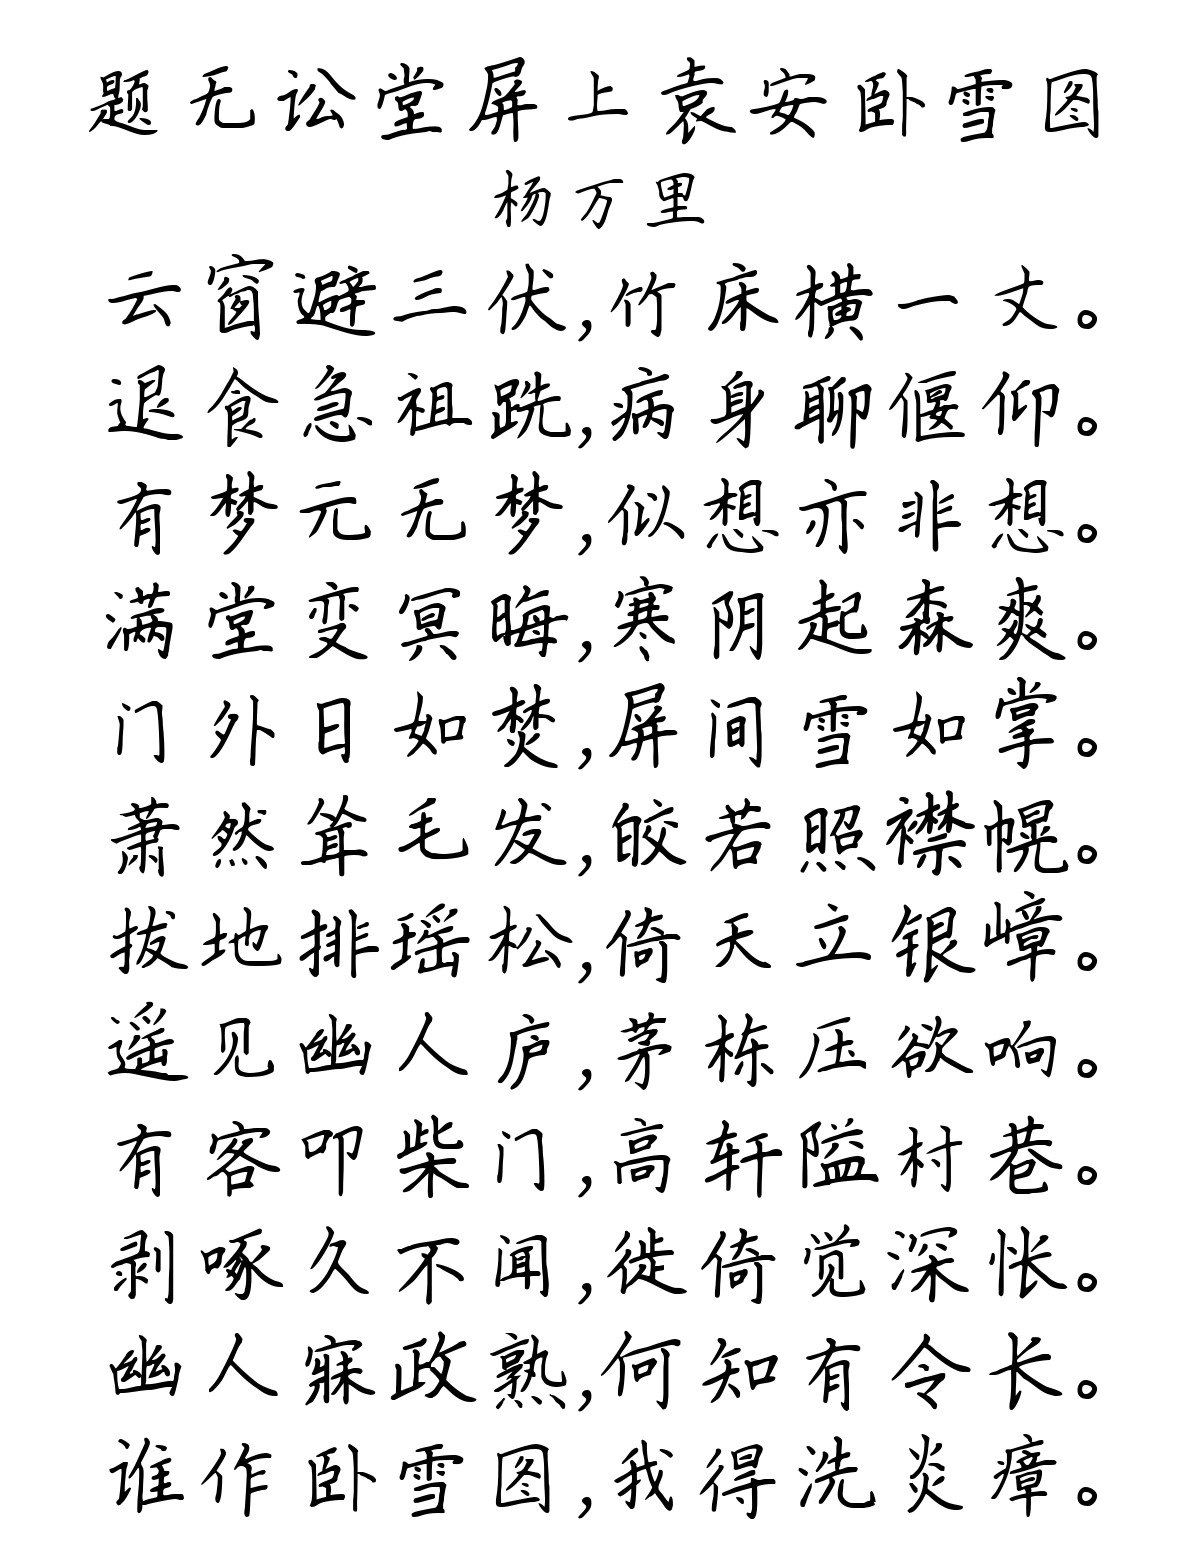 题无讼堂屏上袁安卧雪图
杨万里
云窗避三伏,竹床横一丈。
退食急祖跣,病身聊偃仰。
有梦元无梦,似想亦非想。
满堂变冥晦,寒阴起森爽。
门外日如焚,屏间雪如掌。
萧然耸毛发,皎若照襟幌。
拔地排瑶松,倚天立银嶂。
遥见幽人庐,茅栋压欲响。
有客叩柴门,高轩隘村巷。
剥啄久不闻,徙倚觉深怅。
幽人寐政熟,何知有令长。
谁作卧雪图,我得洗炎瘴。